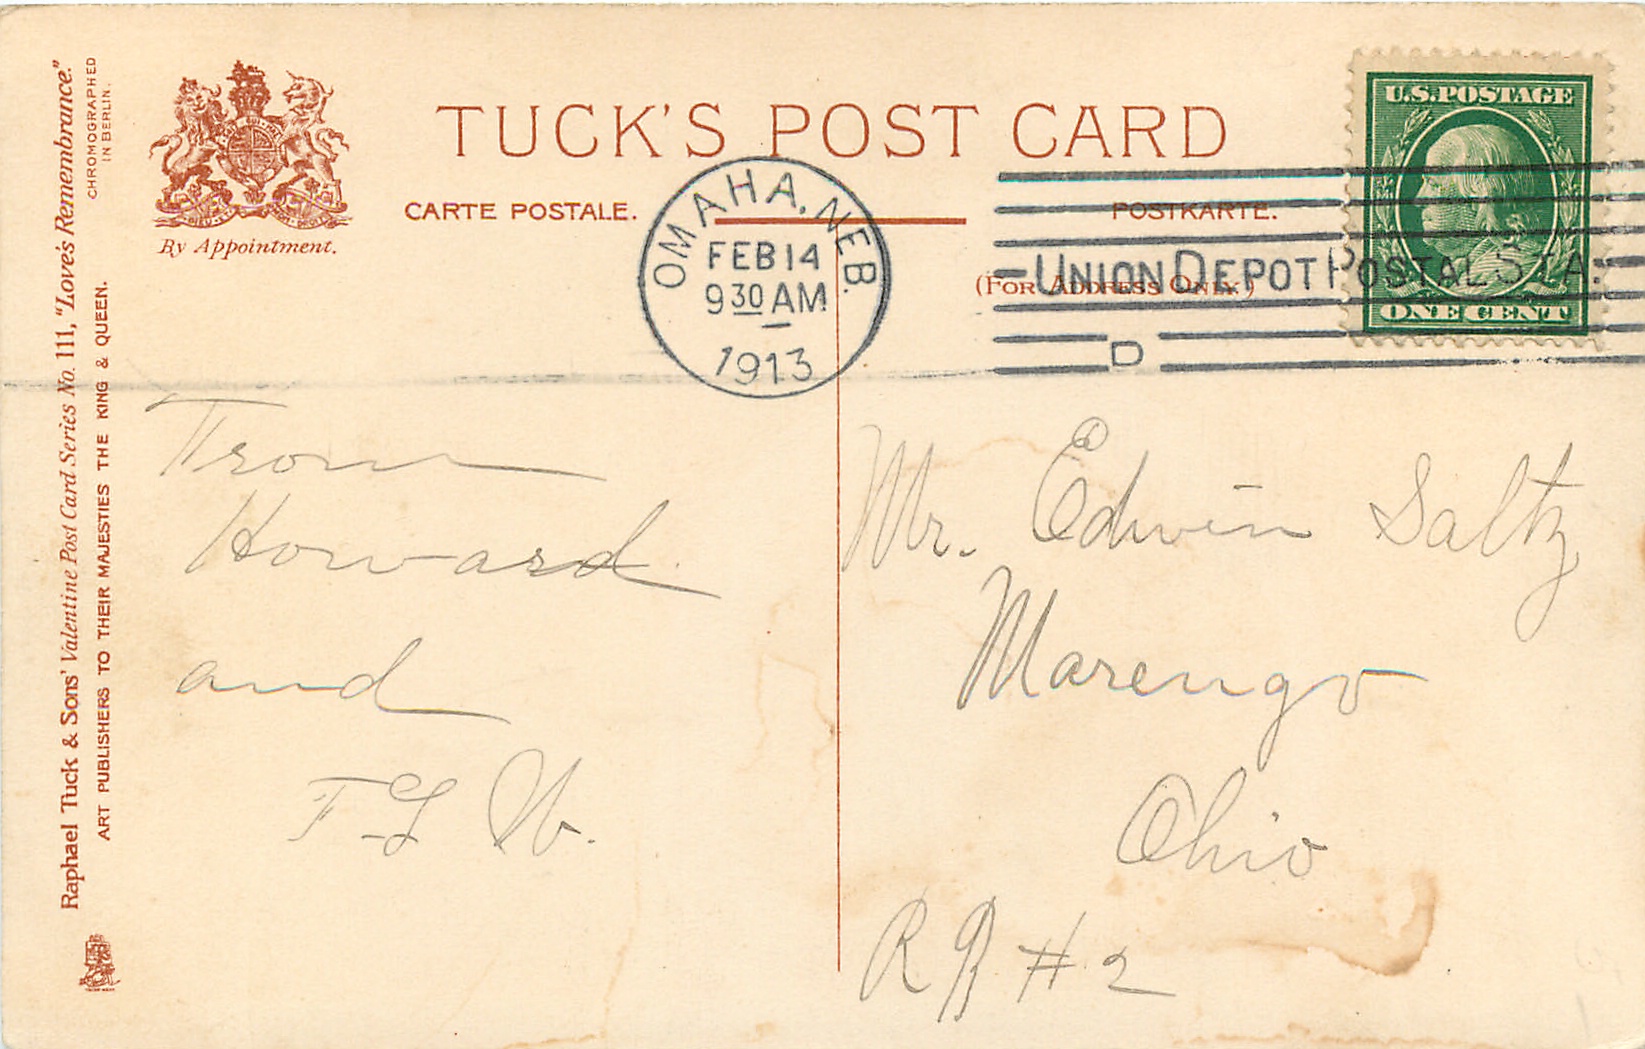 TUCK'S POST CARD
CARTE POSTALE.
POSTKARTE.
(For Address Only.)
By Appointment.
Raphael Tuck & Sons' Valentine Post Card Series No. 111, "Love's Remembrance."
ART PUBLISHERS TO THEIR MAJESTIES THE KING & QUEEN.
CHROMOGRAPHED
IN BERLIN.
OMAHA, NEB.
FEB 14
9 30 AM
1913
UNION DEPOT POSTAL STA.
D
U.S. POSTAGE
ONE CENT
From
Howard
and
Mr. Edwin Saltz
Marengo
Ohio
# 2